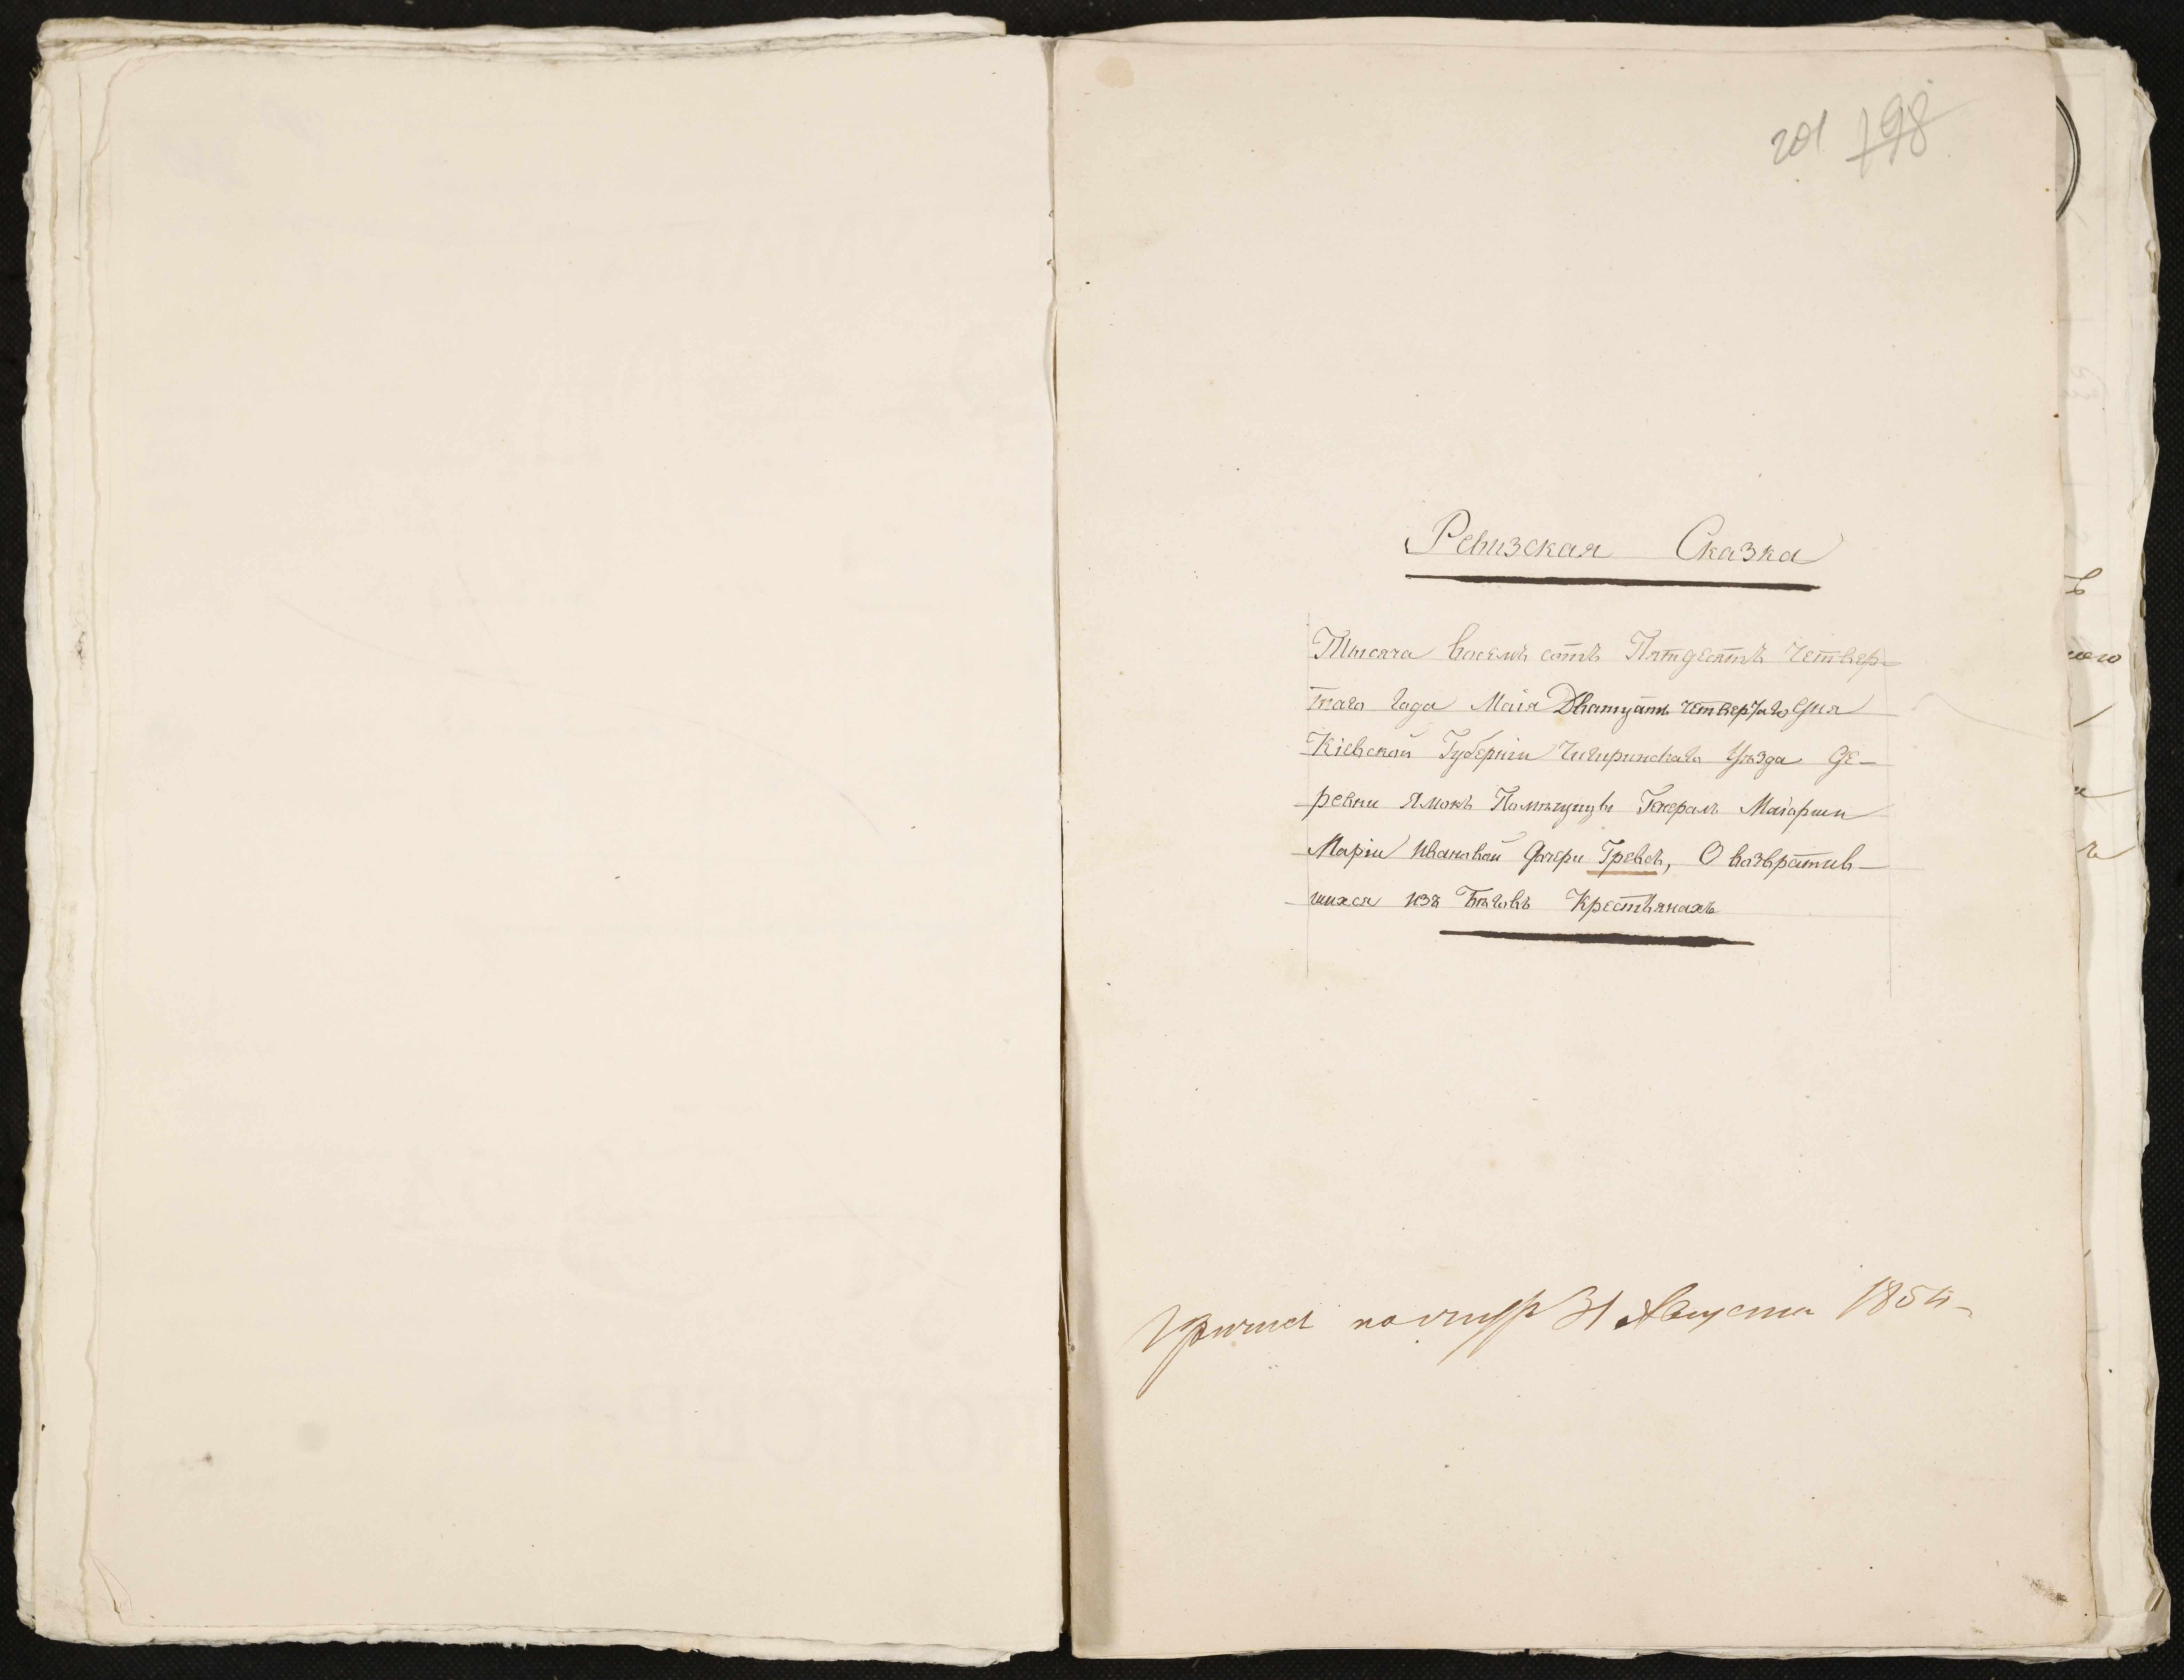 201 198
Ревизская Сказка
Тысяча восемь сотъ Пятдесятъ Четвер-
таго Года Маія Дватцать четвертаго Дня
Кіевской Губерніи Чигиринскаго Уѣзда Де-
ревни Ямокъ Помѣщицы Генералъ Маіорши
Маріи Ивановой Дочери Гревсъ, О возвратив-
шихся изъ Бѣговъ Крестьянахъ
31 Августа 1854